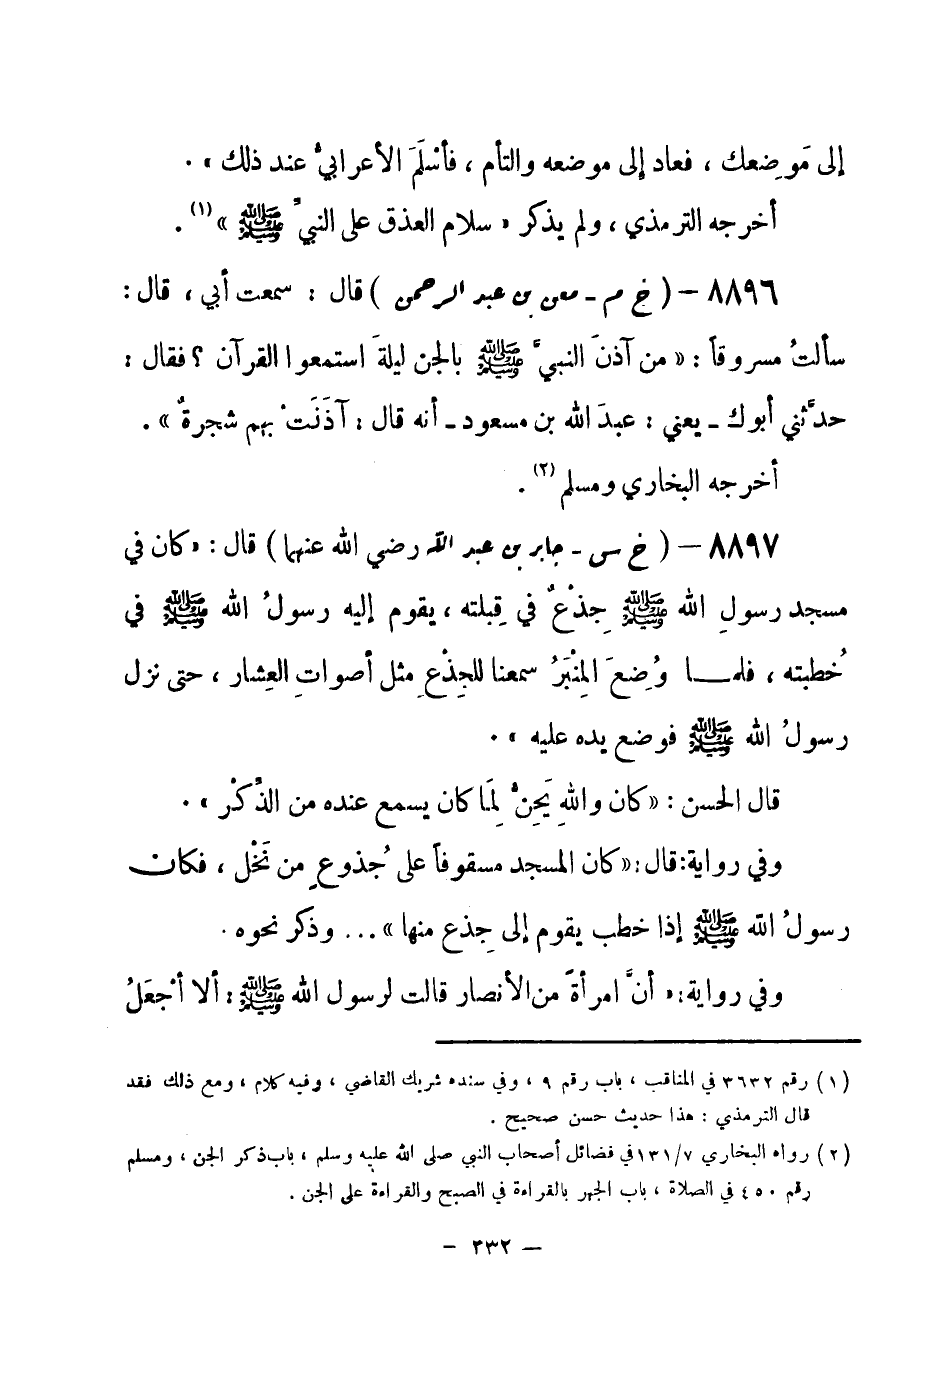 إلى مَوضعك ، فعاد إلى موضعه والتأم ، فأسْلَمَ الأعرابيُّ عند ذلك » .
أخرجه الترمذي ، ولم يذكر « سلام العذق على النبيِّ ﷺ »(١) .
٨٨٩٦ – ( خ م ـ معن بن عبد الرحمن ) قال : سمعت أبي ، قال :
سألتُ مسروقاً : « من آذنَ النبيَّ ﷺ بالجن ليلةَ استمعوا القرآن ؟ فقال :
حدَّثني أبوك ـ يعني : عبدَ الله بن مسعود ـ أنه قال : آذَنَتْ بهم شجرةٌ » .
أخرجه البخاري ومسلم(٢) .
٨٨٩٧ – ( خ س ـ جابر بن عبد الله رضي الله عنهما ) قال : « كان في
مسجد رسولِ الله ﷺ جِذْعٌ في قِبلته ، يقوم إليه رسولُ الله ﷺ في
خُطبته ، فلمـــا وُضِعَ المِنْبَرُ سمعنا للجِذْعِ مثل أصواتِ العِشار ، حتى نزل
رسولُ الله ﷺ فوضع يده عليه » .
قال الحسن : « كان واللهِ يَحِنُّ لِمَا كان يسمع عنده من الذِّكْر » .
وفي رواية: قال: « كان المسجد مسقوفاً على جُذوعٍ من نَخْل ، فكان
رسولُ الله ﷺ إذا خطب يقوم إلى جِذع منها » ... وذكر نحوه .
وفي رواية: « أنَّ امرأةً من الأنصار قالت لرسول الله ﷺ : ألا أجْعَلُ
(١) رقم ٣٦٣٢ في المناقب ، باب رقم ٩ ، وفي سنده شريك القاضي ، وفيه كلام ، ومع ذلك فقد
قال الترمذي : هذا حديث حسن صحيح .
(٢) رواه البخاري ١٣١/٧ في فضائل أصحاب النبي صلى الله عليه وسلم ، باب ذكر الجن ، ومسلم
رقم ٤٥٠ في الصلاة ، باب الجهر بالقراءة في الصبح والقراءة على الجن .
– ٣٣٢ –